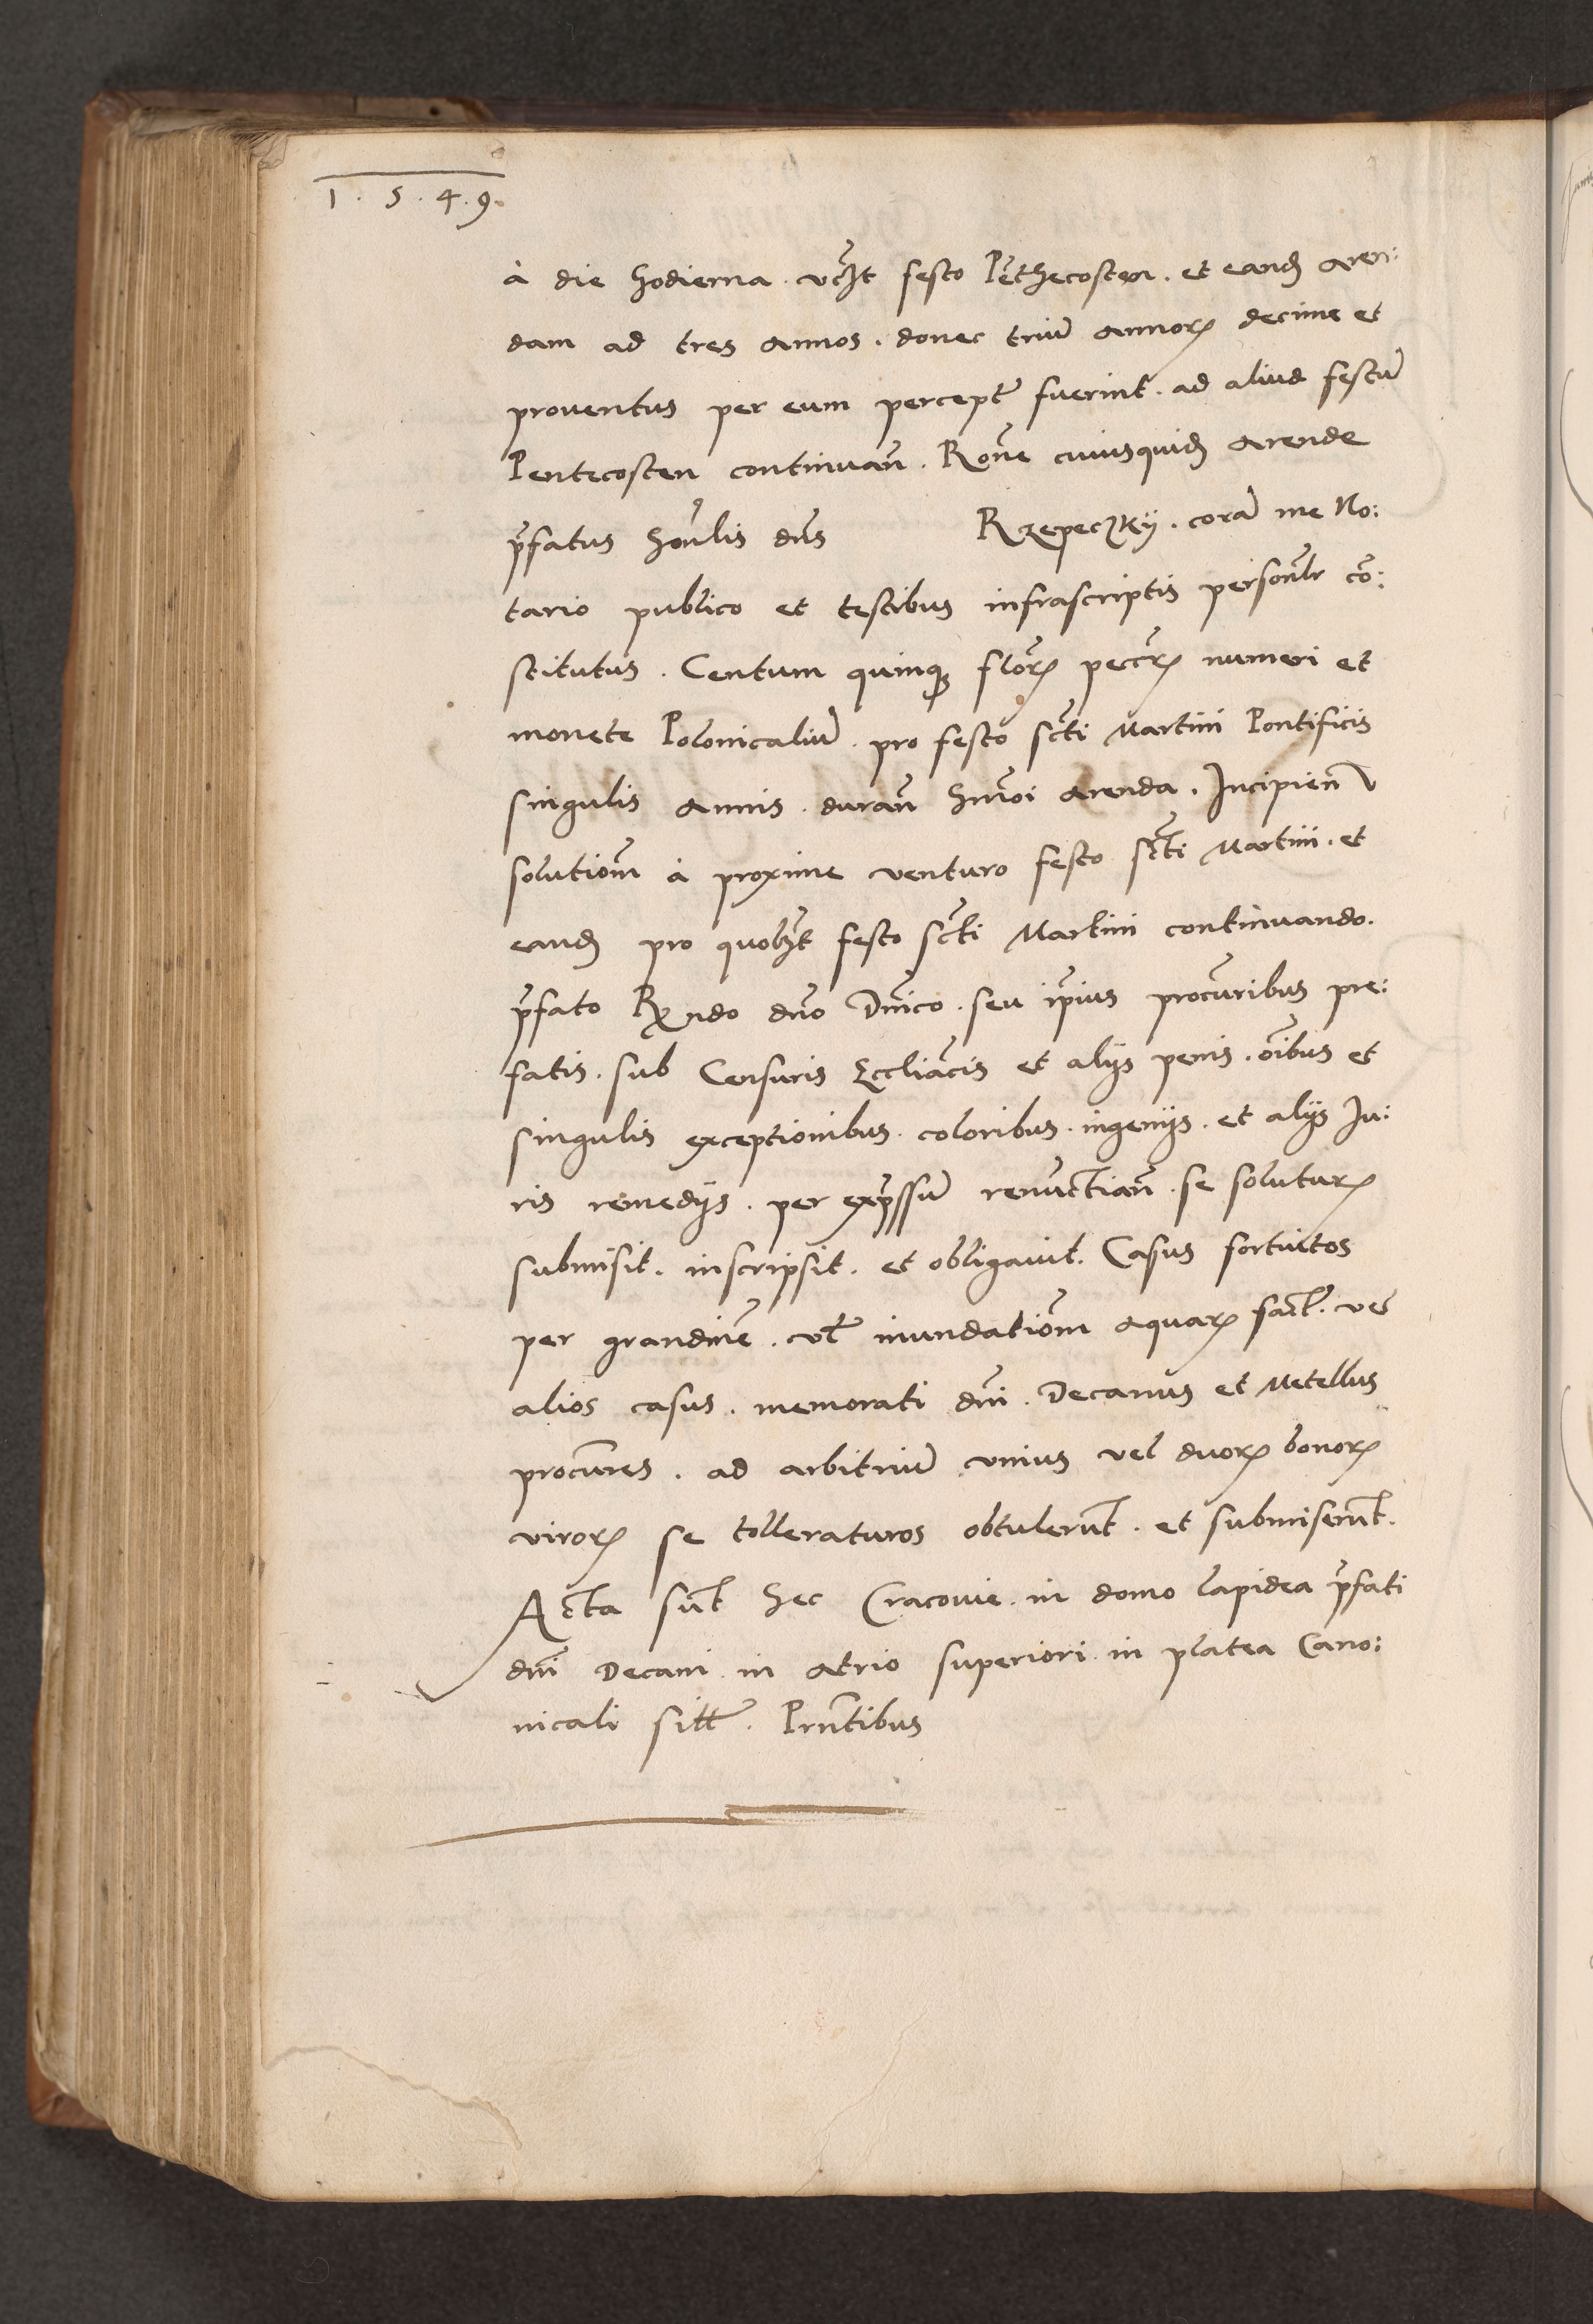 1 . 5 . 4 . 9 .
à die hodierna . vcꝫt festo Pēthecosten . et eandꝫ aren:
dam ad tres annos . donec triū annorꝝ decime et
prouentus per eum percept̄ fuerint . ad aliud festū
Pentecosten continuan̄ . Rōne cuiusquidꝫ arende
p̄fatus honīlis dn̄s Rzepeczkij . corā me No:
tario publico et testibus infrascriptis personl̄r cō:
stitutus . Centum quinqꝫ flōrꝝ pecc̄rꝝ numeri et
monete Polonicaliū . pro festo sc̄ti Martini Pontificis
singulis annis . duran̄ hm̄oi arenda . Incipien̄
solutiōm à proxime venturo festo sc̄ti Martini . et
eandꝫ pro quobꝫt festo sc̄ti Martini continuando .
p̄fato Rꝫndo dn̄o Dn̄ico . seu ip̄ius procūribus pre:
fatis . sub Censuris Eccliācis et alijs penis . oībus et
singulis exceptionibus . coloribus . ingenijs . et alijs Ju:
ris remedijs . per exp̄ssū renūctian̄ . se soluturꝝ
submisit . inscripsit . et obligauit . Casus fortuitos
per grandinē . vl̄ inundatiōm aquarꝝ fact̄ . vel
alios casus . memorati dn̄i . Decanus et Metellus
procūres . ad arbitriū vnius vel duorꝝ bonorꝝ
virorꝝ se tolleraturos obtulerūt . et submiserūt .
Acta sūt hec Cracouie . in domo lapidea p̄fati
dn̄i Decani in atrio superiori in platea Cano:
nicali sitt̄ . Prn̄tibus